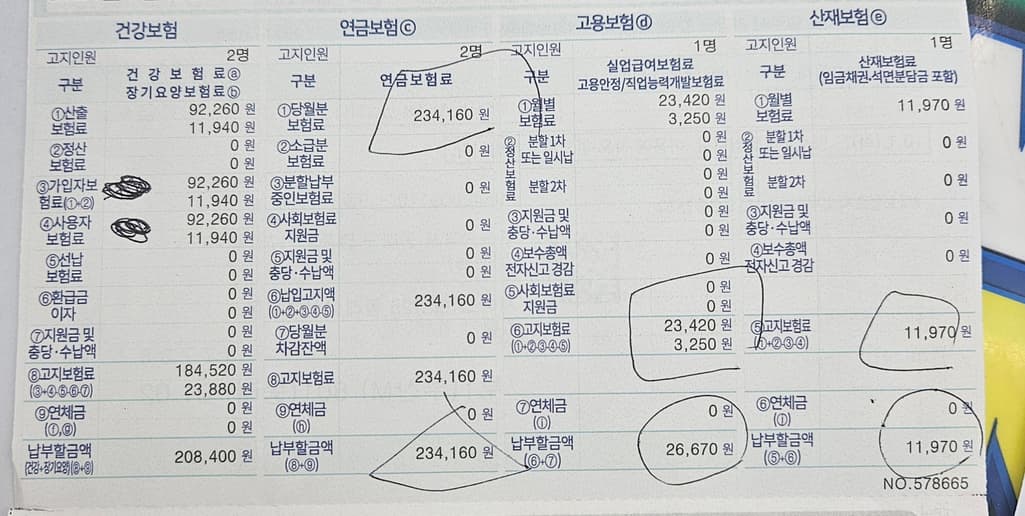 건강보험
고지인원 2명
구분 건강보험료ⓐ
장기요양보험료ⓑ
①산출보험료 92,260 원
11,940 원
②정산보험료 0 원
0 원
③가입자보험료(①+②) 92,260 원
11,940 원
④사용자보험료 92,260 원
11,940 원
⑤선납보험료 0 원
0 원
⑥환급금이자 0 원
0 원
⑦지원금 및 충당·수납액 0 원
0 원
⑧고지보험료 184,520 원
(③+④-⑤-⑥-⑦) 23,880 원
⑨연체금 0 원
(ⓕ,ⓖ) 0 원
납부할금액 208,400 원
(건강+장기요양)(⑧+⑨)
연금보험ⓒ
고지인원 2명
구분 연금보험료
①당월분보험료 234,160 원
②소급분보험료 0 원
③분할납부중인보험료 0 원
④사회보험료지원금 0 원
⑤지원금 및 충당·수납액 0 원
0 원
⑥납입고지액 234,160 원
(①+②+③-④-⑤)
⑦당월분차감잔액 0 원
⑧고지보험료 234,160 원
⑨연체금 0 원
(ⓗ)
납부할금액 234,160 원
(⑧+⑨)
고용보험ⓓ
고지인원 1명
구분 실업급여보험료
고용안정/직업능력개발보험료
①월별보험료 23,420 원
3,250 원
②정산보험료 분할1차 또는 일시납 0 원
0 원
분할2차 0 원
0 원
③지원금 및 충당·수납액 0 원
0 원
④보수총액 전자신고 경감 0 원
⑤사회보험료지원금 0 원
0 원
⑥고지보험료 23,420 원
(①+②-③-④-⑤) 3,250 원
⑦연체금 0 원
(ⓘ)
납부할금액 26,670 원
(⑥+⑦)
산재보험ⓔ
고지인원 1명
구분 산재보험료
(임금채권·석면분담금 포함)
①월별보험료 11,970 원
②정산보험료 분할1차 또는 일시납 0 원
분할2차 0 원
③지원금 및 충당·수납액 0 원
④보수총액 전자신고 경감 0 원
⑤고지보험료 11,970 원
(①+②-③-④)
⑥연체금 0 원
(ⓙ)
납부할금액 11,970 원
(⑤+⑥)
NO.578665